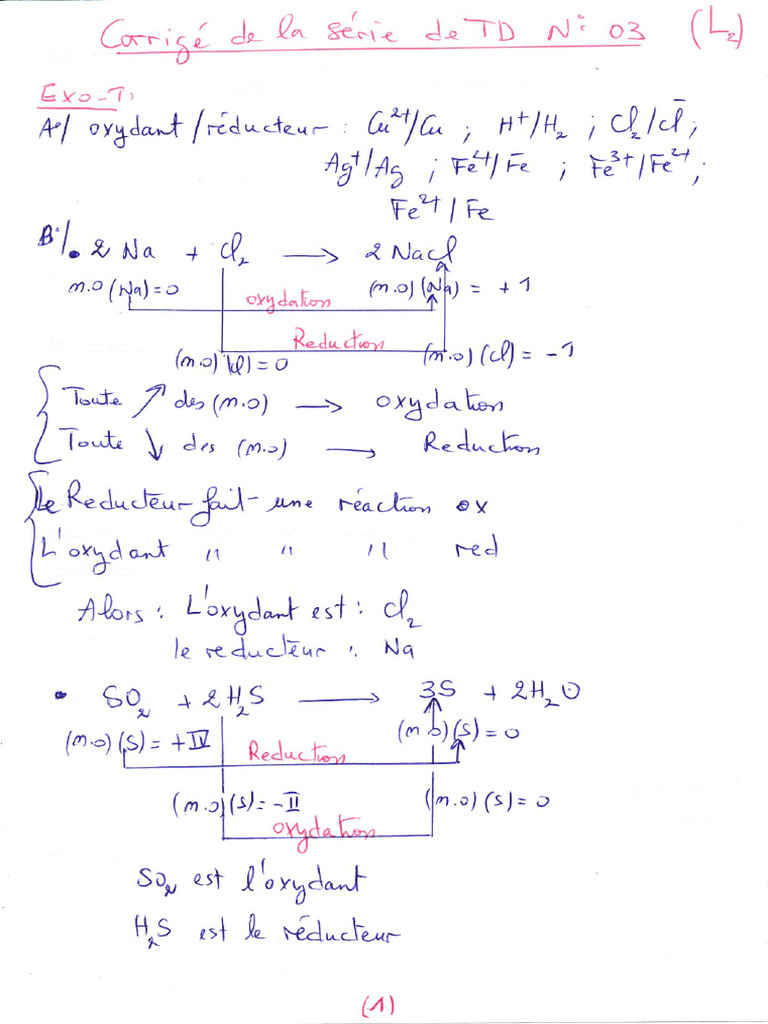 Corrigé de la série de TD N° 03 (L₂)
Exo-I:
A°/ oxydant/réducteur : Cu²⁺/Cu ; H⁺/H₂ ; Cl₂/Cl⁻ ;
Ag⁺/Ag ; Fe²⁺/Fe ; Fe³⁺/Fe²⁺ ;
Fe²⁺/Fe
B°/. 2 Na + Cl₂ → 2 NaCl
m.o (Na) = 0 oxydation (m.o) (Na) = +1
Reduction
(m.o) (Cl) = 0 (m.o) (Cl) = -1
Toute ↗ des (m.o) → oxydation
Toute ↓ des (m.o) → Reduction
Le Reducteur fait une réaction ox
L'oxydant " " " red
Alors : L'oxydant est : Cl₂
le reducteur : Na
• SO₂ + 2H₂S → 3S + 2H₂O
(m.o) (S) = +IV (m.o) (S) = 0
Reduction
(m.o) (S) = -II (m.o) (S) = 0
oxydation
SO₂ est l'oxydant
H₂S est le réducteur
(1)